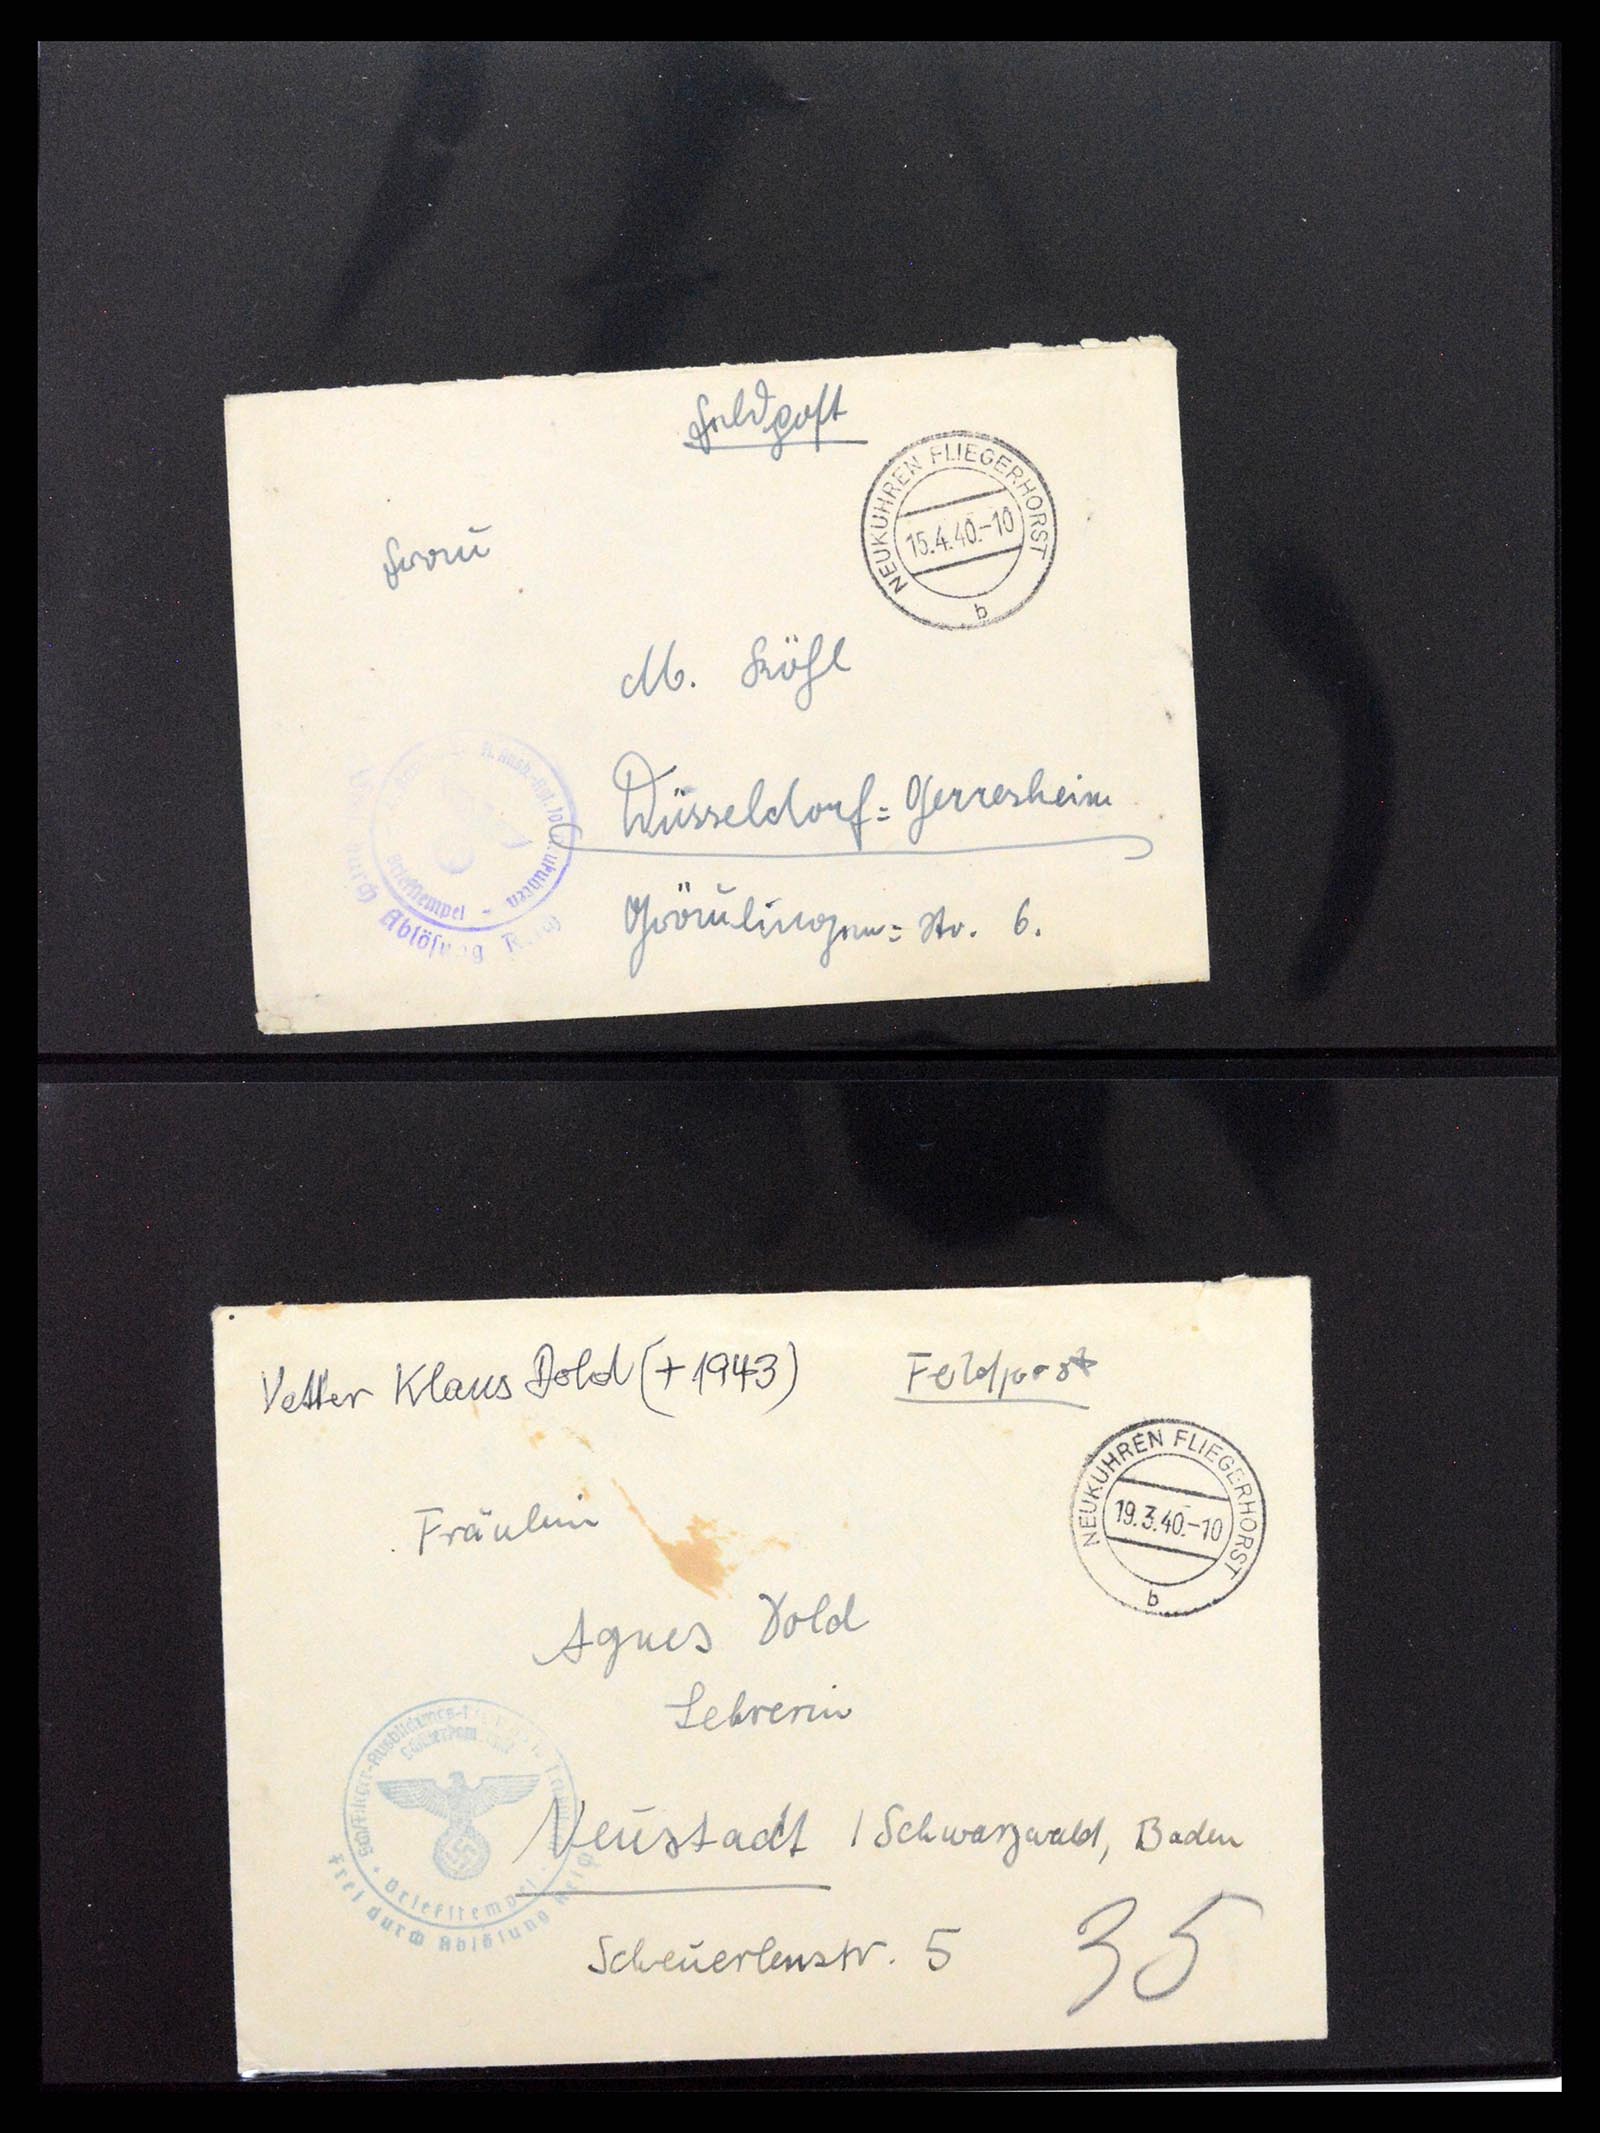 Feldpost
NEUKUHREN FLIEGERHORST
15.4.40.-10
b
Frau
M. Köhl
Düsseldorf=Gerresheim
Gräulinger=Str. 6.
Briefstempel
durch Ablösung Reich
Vetter Klaus Dold (+1943)
Feldpost
NEUKUHREN FLIEGERHORST
19.3.40.-10
b
Fräulein
Agnes Dold
Lehrerin
Neustadt / Schwarzwald, Baden
Scheuerlenstr. 5
35
Briefstempel
Frei durch Ablösung Reich